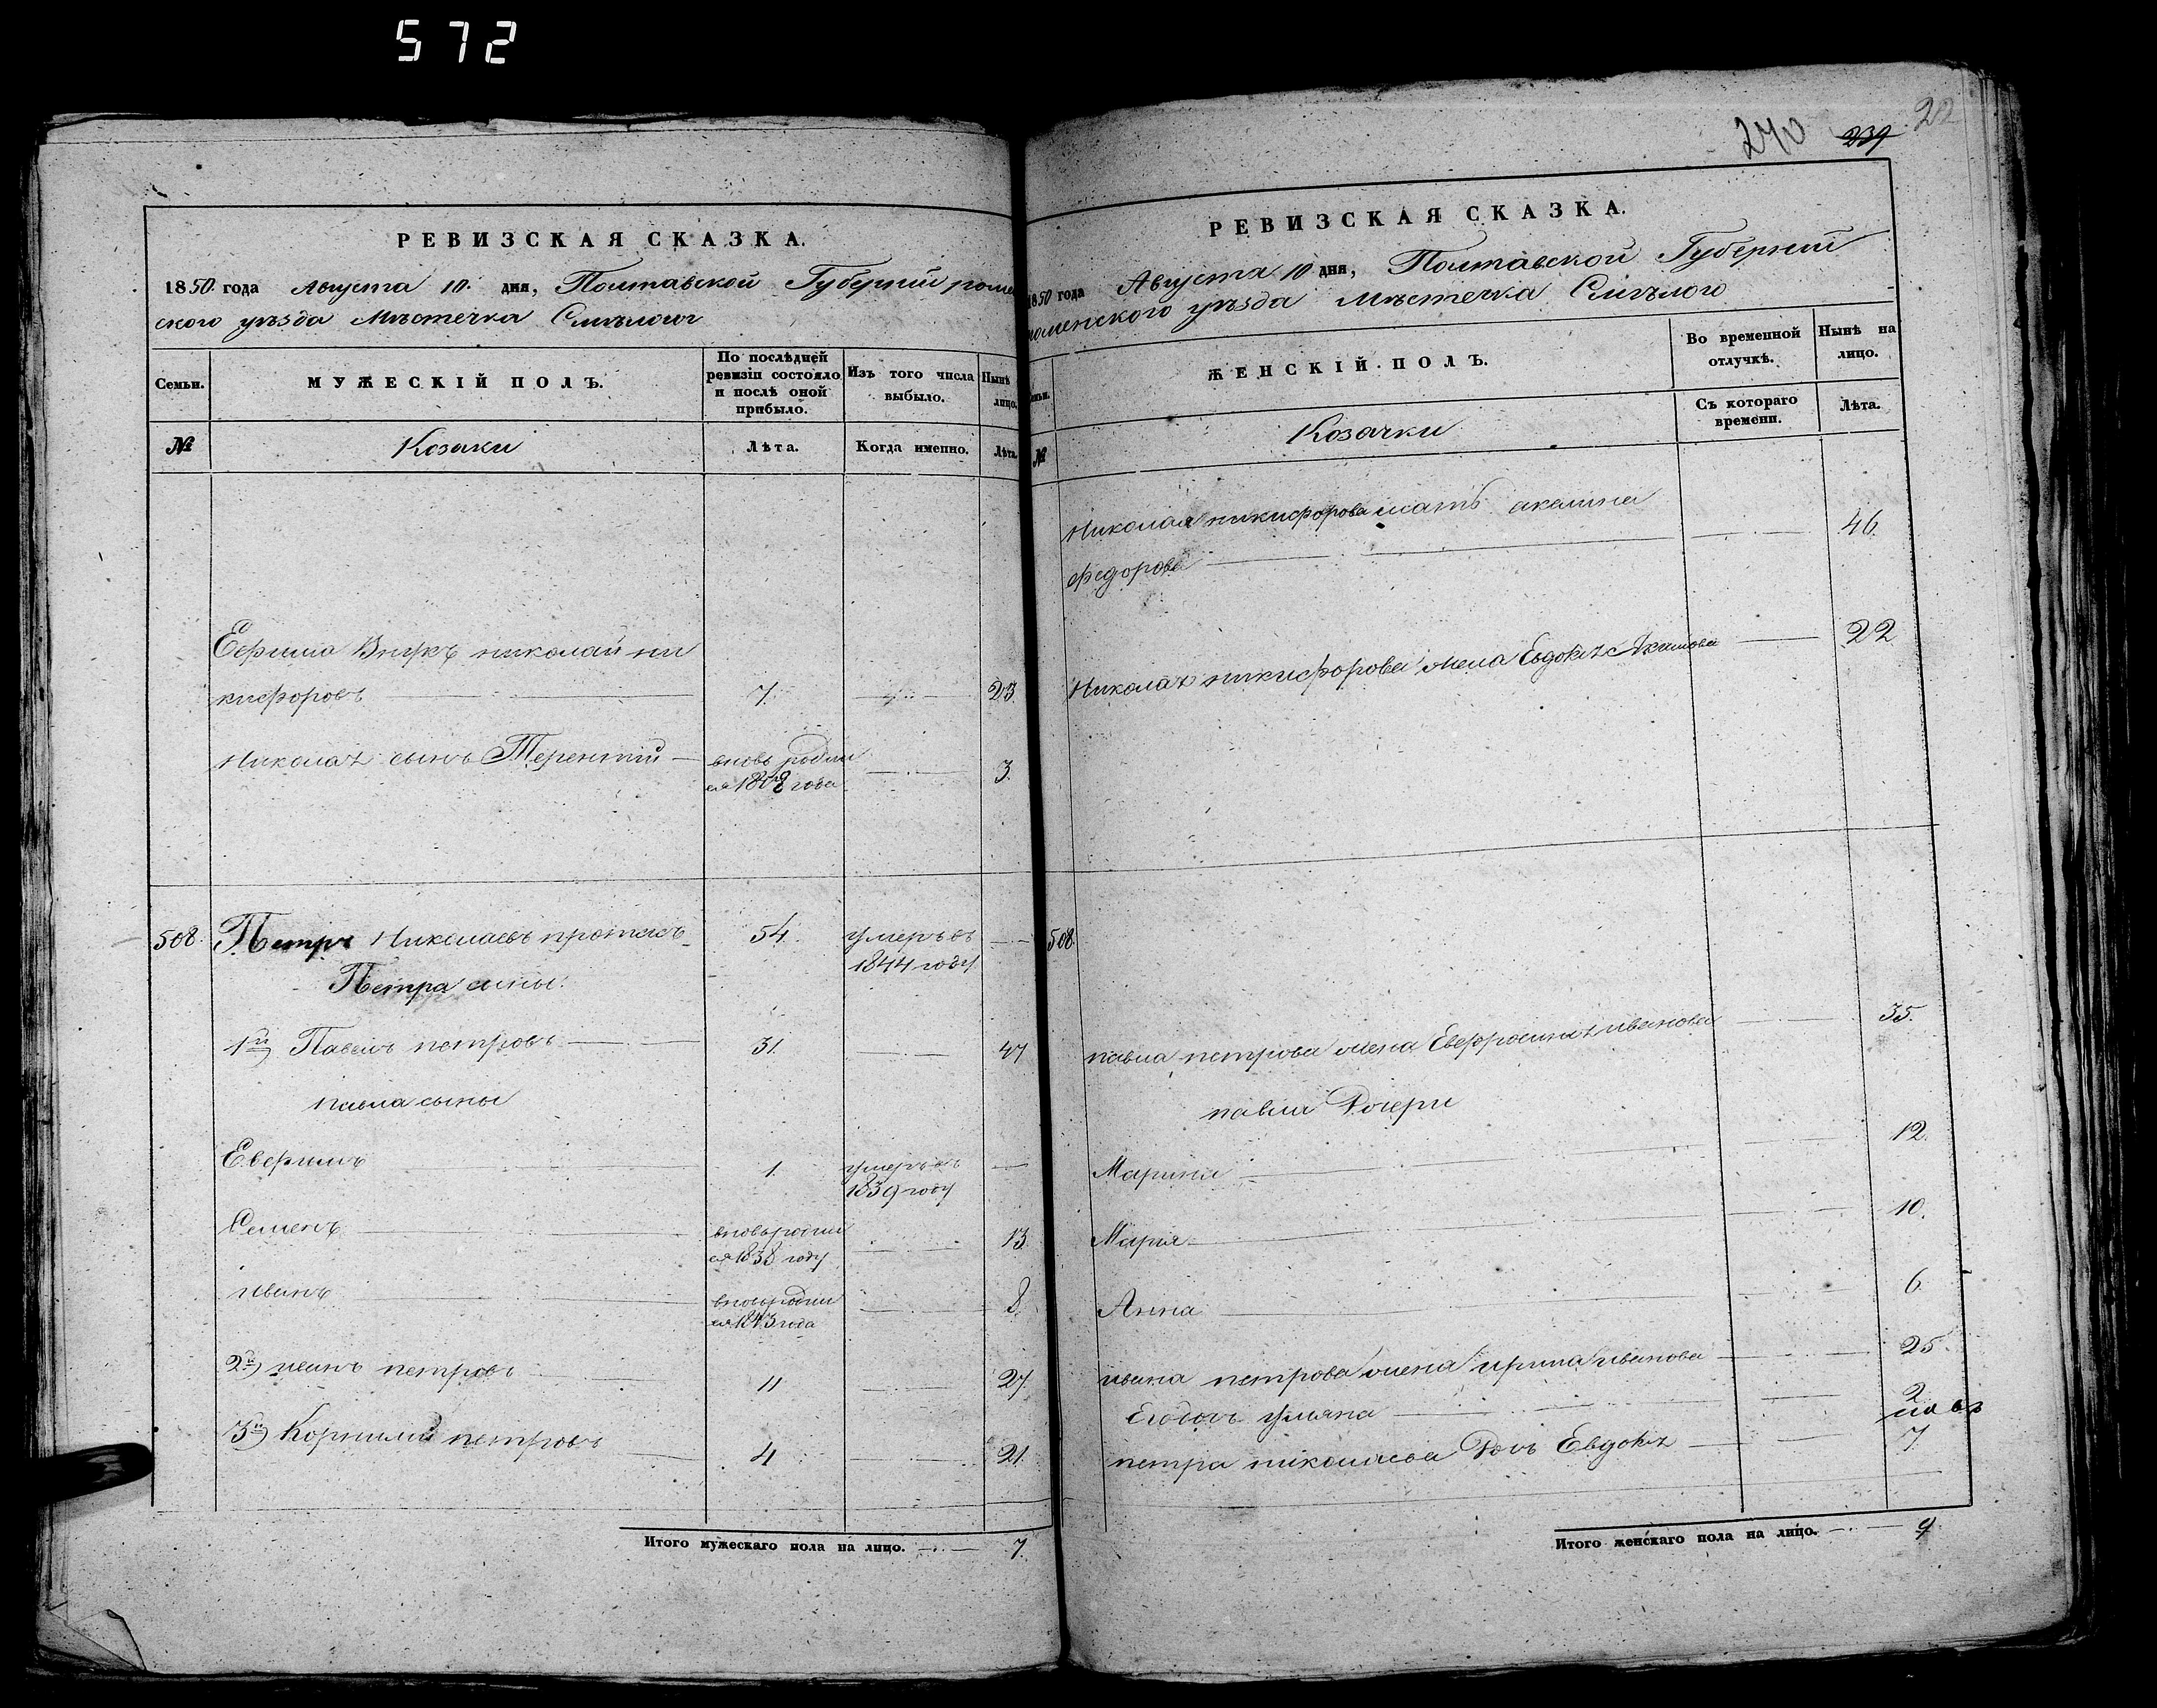 572
РЕВИЗСКАЯ СКАЗКА.
1850 года Августа 10. дня, Полтавской Губерніи роме
ского уѣзда Мѣстечка Смѣлого
Семьи.
МУЖЕСКІЙ ПОЛЪ.
По послѣдней ревизіи состояло и послѣ оной прибыло.
Изъ того числа выбыло.
Нынѣ лицо.
№
Козаки
Лѣта.
Когда именно.
Лѣта.
Ефима Внукъ николай ни
кифоровъ 7. 23.
Николая сынъ Терентій вновь родил 3.
ся года
508. Петръ Николаевъ 54. умеръ въ
1844 году
Петра сыны:
1й) Павелъ петровъ 31. 47
павла сыны
Евфимъ 1. умеръ въ
1839 году
Семенъ вновь родил 13.
ся 1838 году
иванъ вновь родил 8.
ся 1843 года
2й) иванъ петровъ 11 27.
3й) Корнилій петровъ 4 21.
Итого мужескаго пола на лицо. 7.
240 239
РЕВИЗСКАЯ СКАЗКА.
1850 года Августа 10 дня, Полтавской Губерніи
роменского уѣзда Мѣстечка Смѣлого
ЖЕНСКІЙ ПОЛЪ.
Во временной отлучкѣ.
Нынѣ на лицо.
№
Козачки
Съ котораго времени.
Лѣта.
Николая никифорова мать акелина
федорова 46.
Николая никифорова жена Евдокія Якимова 22
508.
павла петрова жена Евфросинія иванова 35.
павла Дочери
Марина 12.
Марія 10.
Анна 6.
ивана петрова жена ирина иванова 25.
Егодочь уляна 2
петра николаева Дочь Евдокія 7.
Итого женскаго пола на лицо. 9.